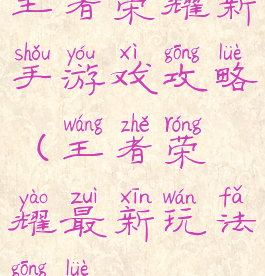 王者荣耀新
shǒu yóu xì gōng lüè
手游戏攻略
wáng zhě róng
(王者荣
yào zuì xīn wán fǎ
耀最新玩法
gōng lüè